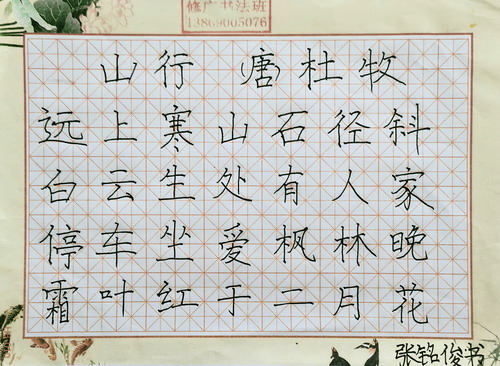 修广书法班
13869005076
山行 (唐)杜牧
远上寒山石径斜
白云生处有人家
停车坐爱枫林晚
霜叶红于二月花
张铭俊书